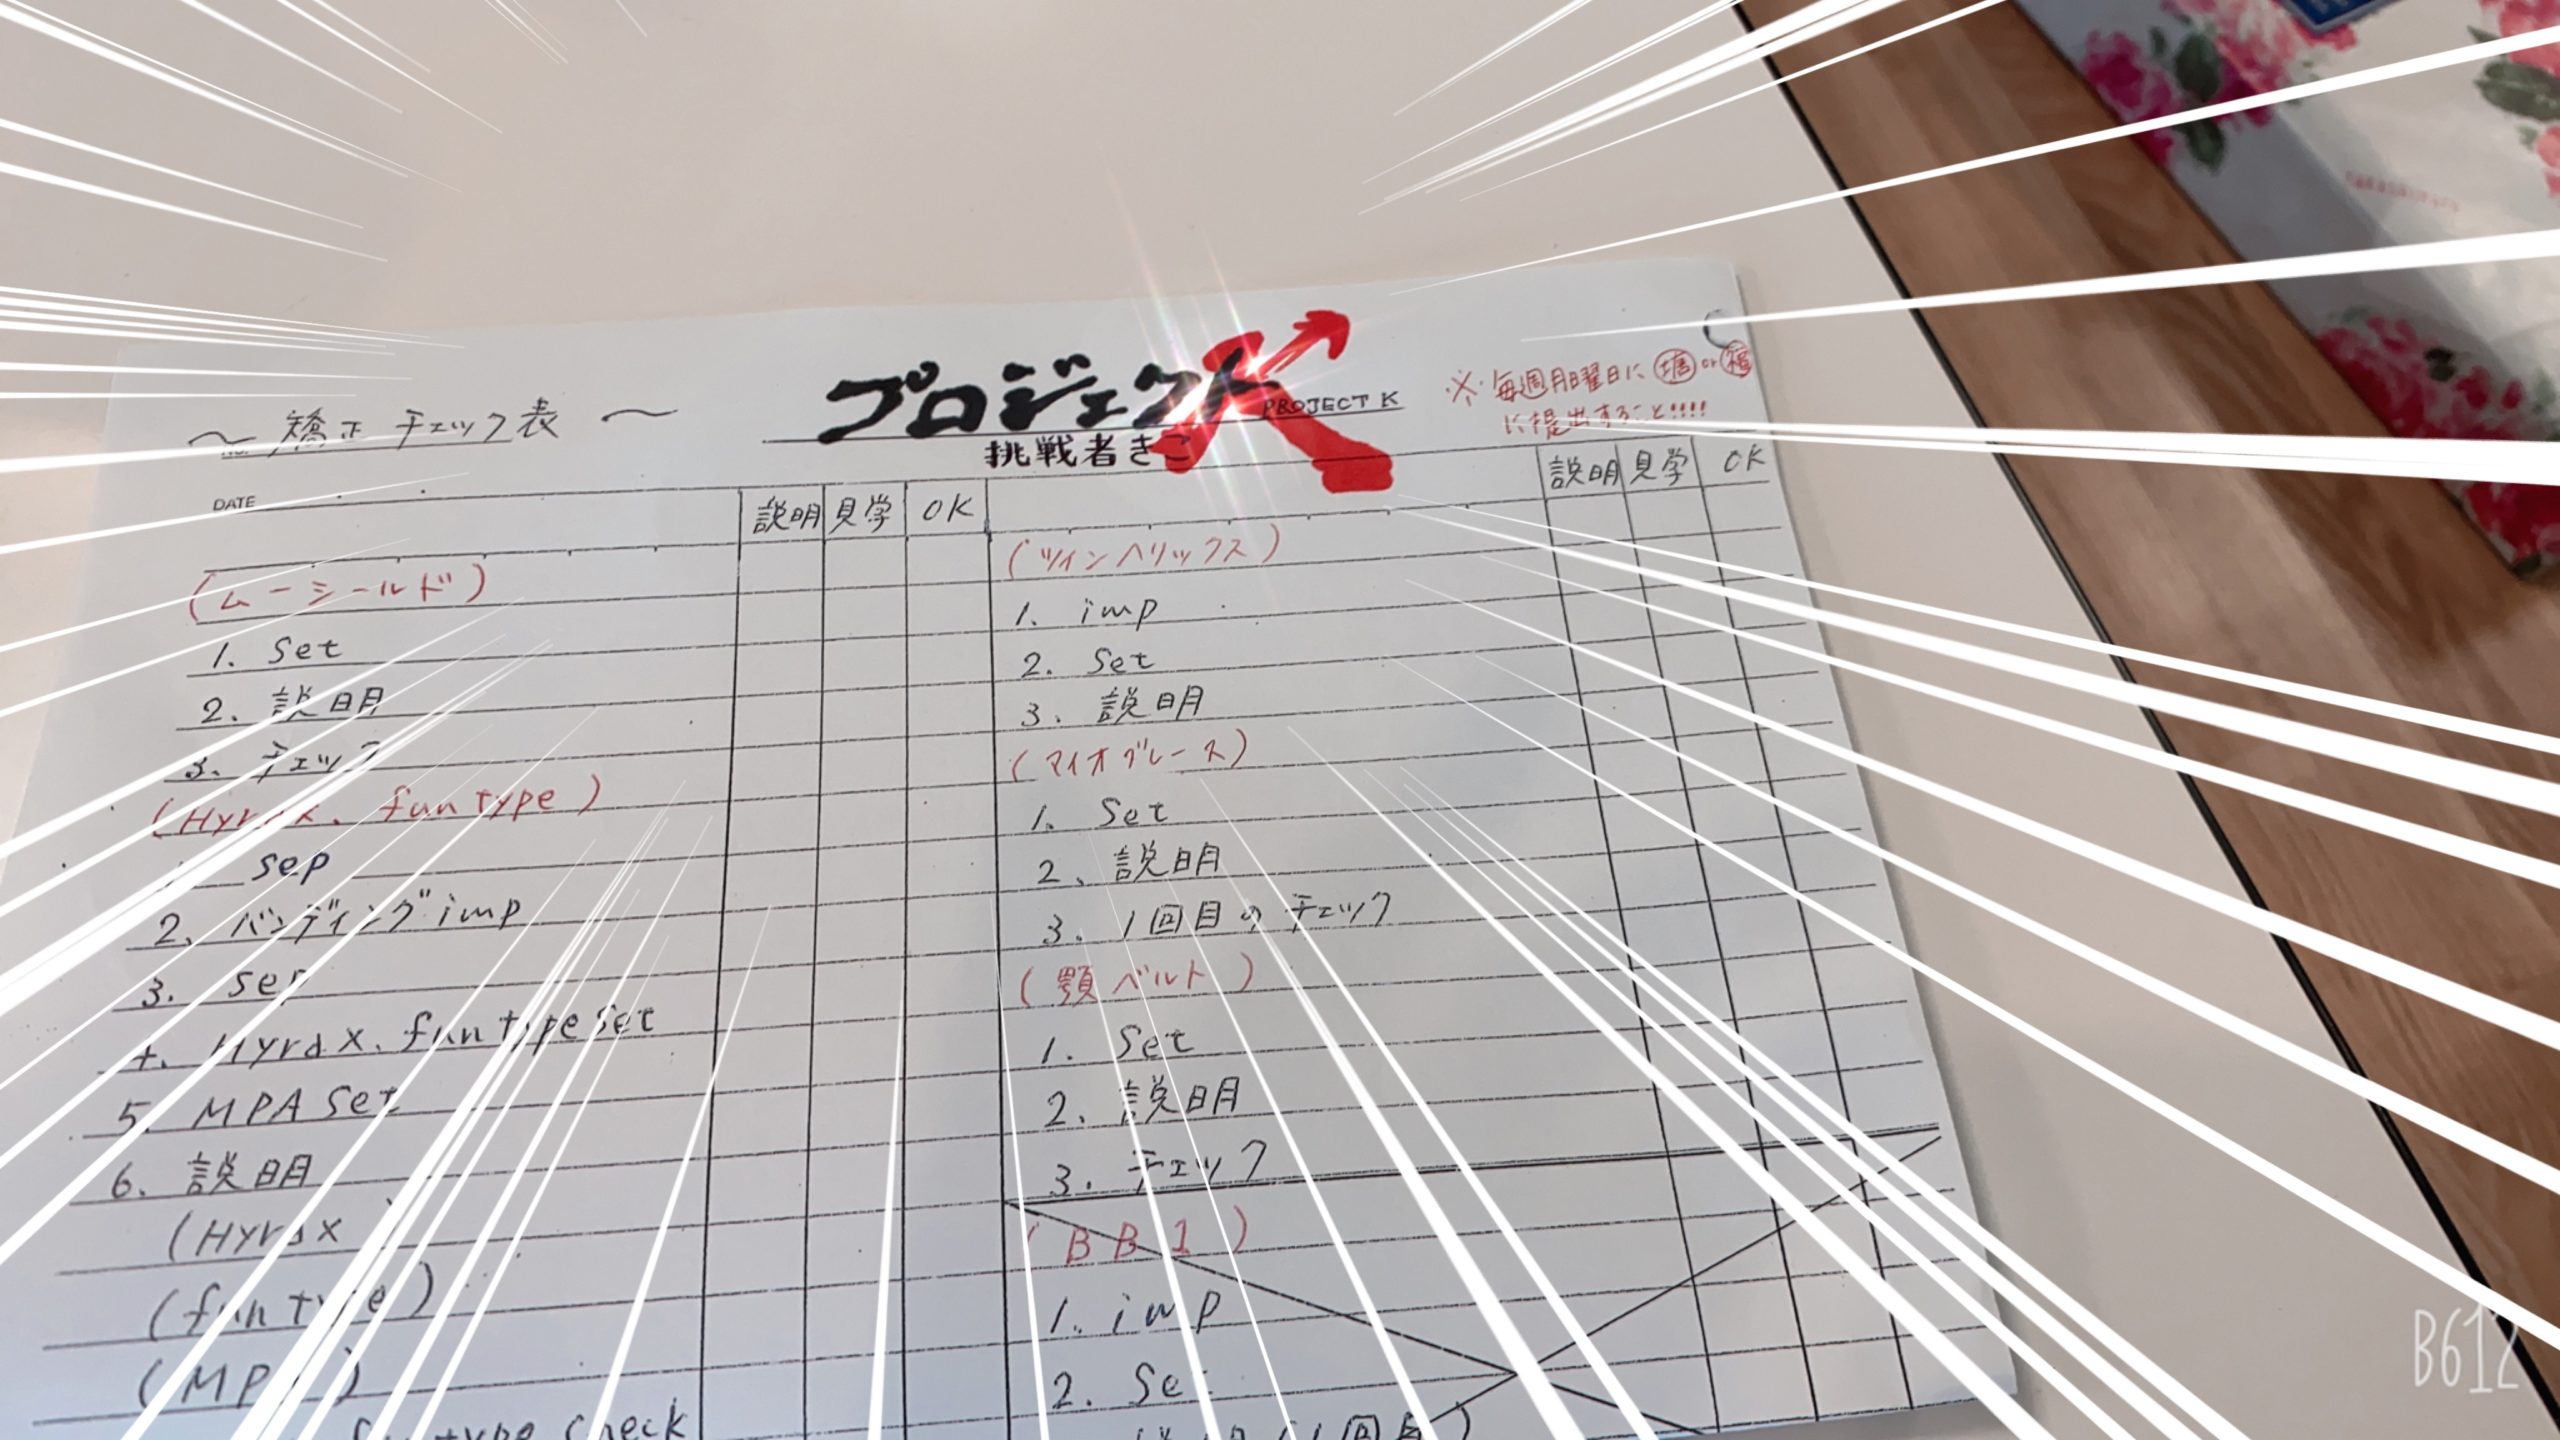 〜 矯正 チェック表 〜
プロジェクト
PROJECT K
挑戦者きこ
※ 毎週月曜日に 塙 or 福
に提出すること!!!!
DATE
説明 見学 OK
(ムーシールド)
1. Set
2. 説明
3. チェック
(Hyrax. fun type)
1. sep
2. バンディング imp
3. sep
4. Hyrax. fun type set
5. MPA set
6. 説明
(Hyrax
(fun type)
(MPA)
fun type check
説明 見学 OK
(ツインヘリックス)
1. imp
2. Set
3. 説明
(マイオブレース)
1. Set
2. 説明
3. 1回目のチェック
(顎ベルト)
1. Set
2. 説明
3. チェック
(BB1)
1. imp
2. Set
(1回目)
B612